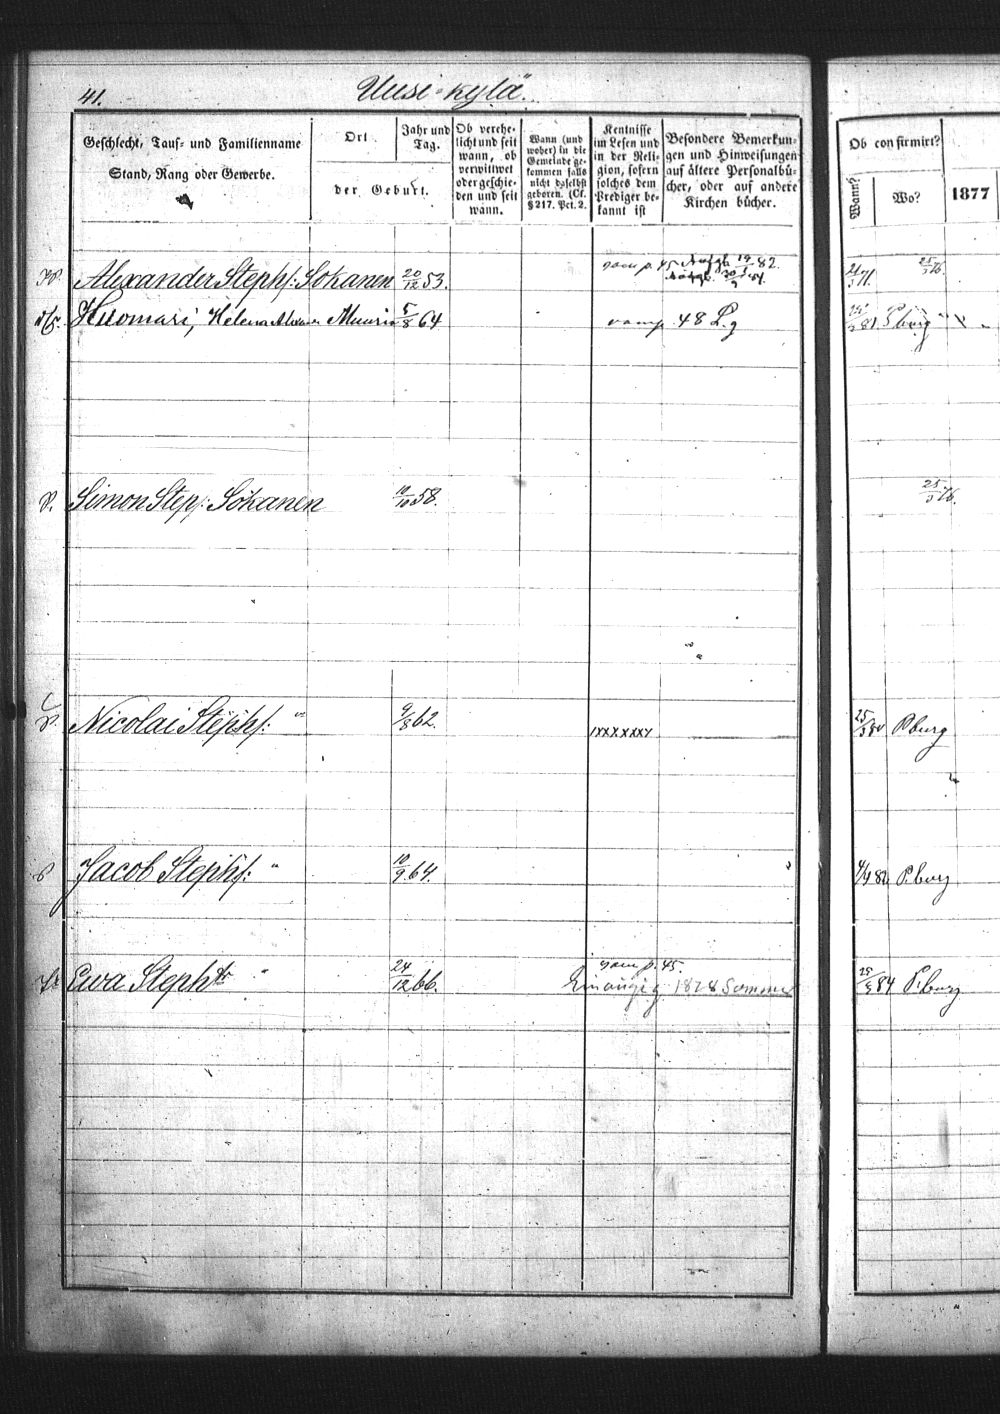 41.
Uusi-kylä.
Geschlecht, Tauf- und Familienname
Stand, Rang oder Gewerbe.
Ort
der Geburt.
Jahr und
Tag.
Ob verehe-
licht und seit
wann, ob
verwittwet
oder geschie-
den und seit
wann.
Wann (und
woher) in die
Gemeinde ge-
kommen falls
nicht daselbst
geboren. (Cf.
§ 217. Pct. 2.
Kentnisse
im Lesen und
in der Reli-
gion, sofern
solches dem
Prediger be-
kannt ist
Besondere Bemerkun-
gen und Hinweisungen
auf ältere Personalbü-
cher, oder auf andere
Kirchen bücher.
Ob confirmirt?
Wann?
Wo?
1877
Alexander Stephs: Sokanen 20/12 53. vom p. 45 19/1 82.
Huomari, Helena Muurin 5/8 64 vom p. 48 P.burg
Simon Steps: Sokanen 10/10 58. 25/3 76.
Nicolai Stephs: " 9/8 62. 25/3 84 P.burg
Jacob Stephs: " 10/9 64. P.burg
Ewa Stephtr " 24/12 66. vom p. 45. 1828 Sommer 25/3 84 P.burg